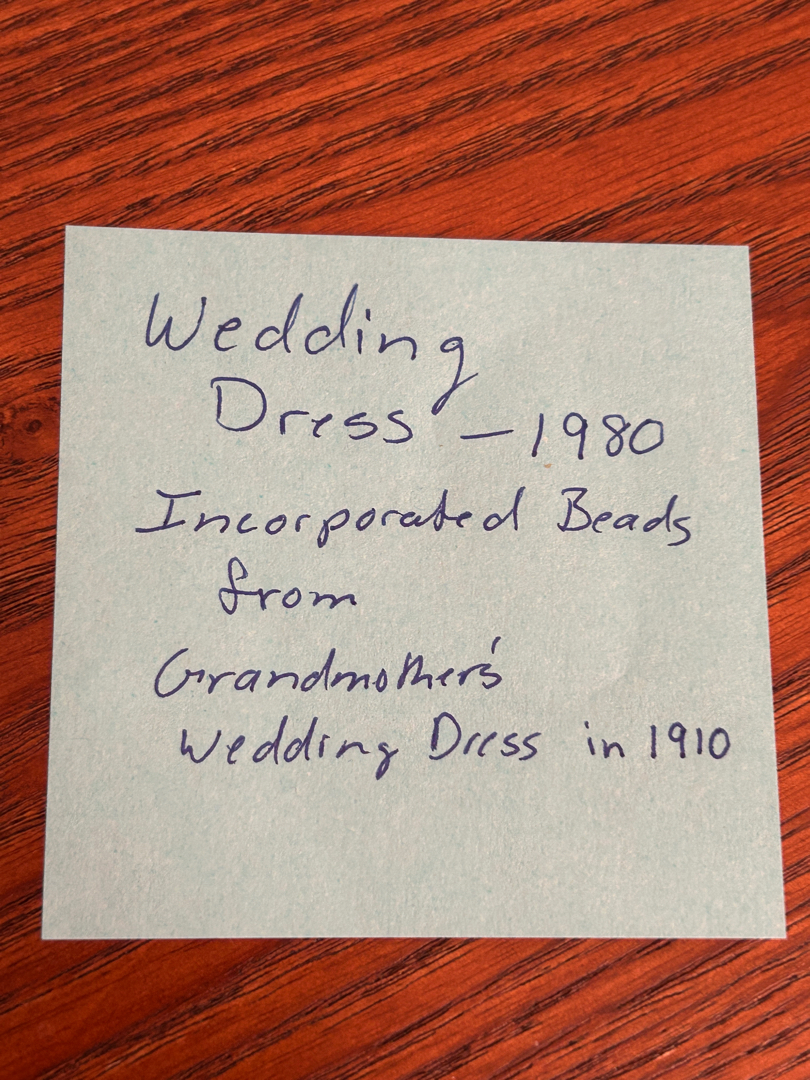 Wedding
Dress - 1980
Incorporated Beads
from
Grandmother's
Wedding Dress in 1910